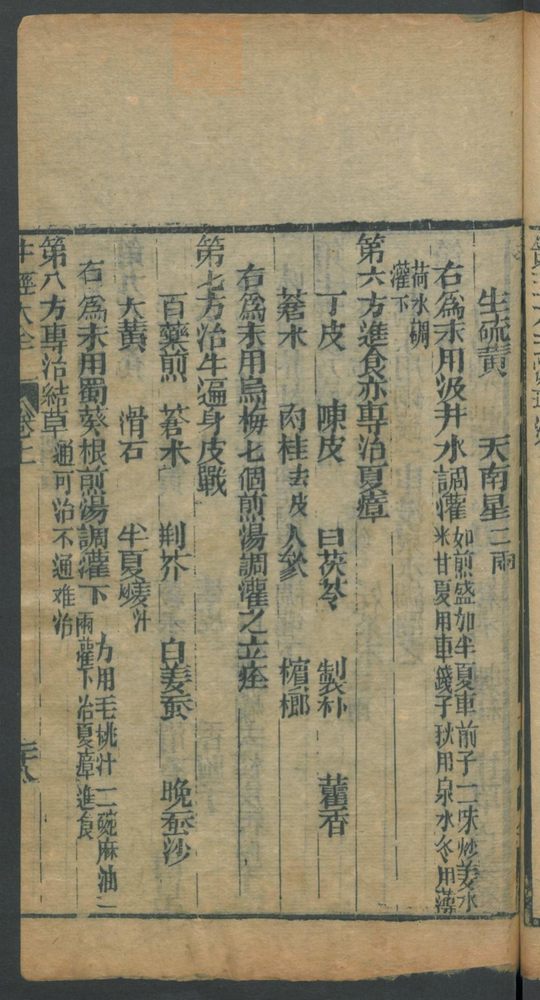 生硫黃　天南星二兩
右為末用汲井水調灌如煎盛加半夏車前子二味炒姜水
米甘夏用車錢子秋用泉水冬用薄
荷水調
灌下
第六方進食亦專治夏瘴
丁皮　陳皮　白茯苓　製朴　藿香
蒼朮　肉桂去皮　人參　檳榔
右為末用烏梅七個煎湯調灌之立痊
第七方治牛遍身皮戰
百藥煎　蒼朮　荆芥　白姜蚕　晚蚕沙
大黃　滑石　半夏
右為末用蜀葵根煎湯調灌下
方用毛桃汁二碗麻油一
兩灌下治夏瘴進食
第八方專治結草通可治不通难治
牛經大全　卷上